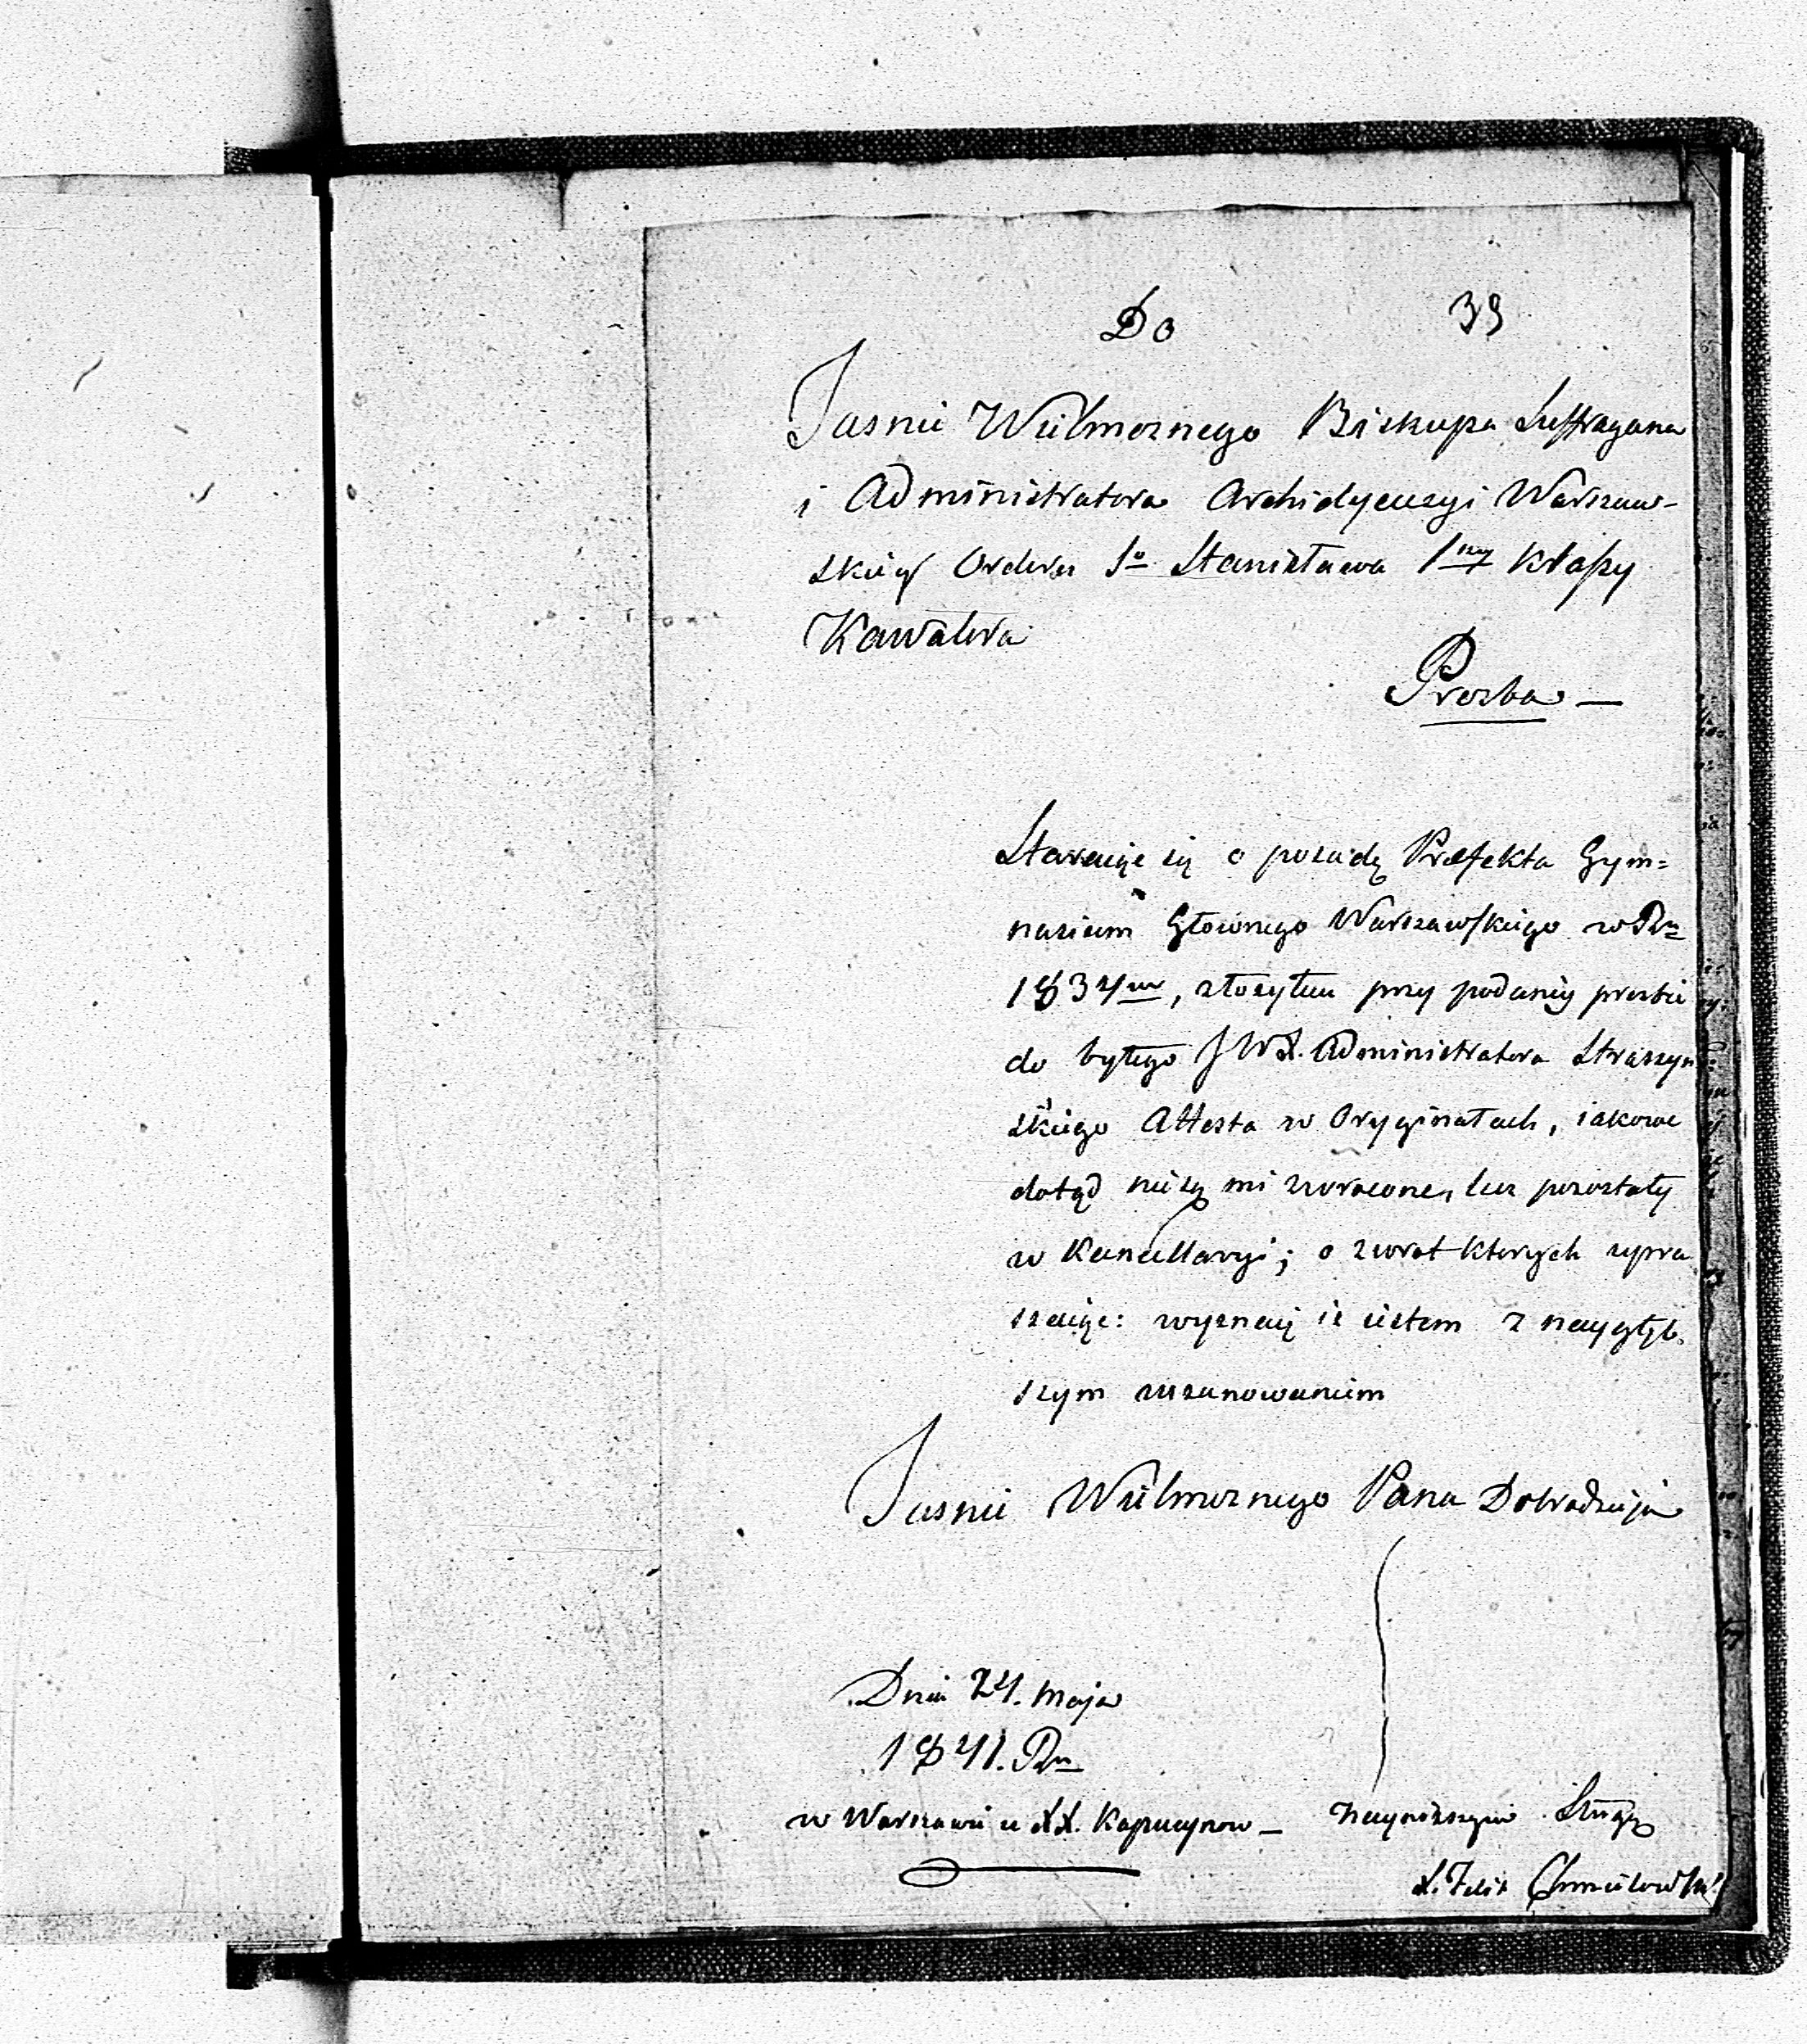 Do
39
Jasnie Wielmoznego Biskupa Suffragana
i Administratora Archidyecezyi Warszaw-
skiey Orderu So Stanisława 1szy klassy
Kawalera
Prozba —
Staraiąc się o posadę Præfekta Gym=
nasium Głownego Warszawskiego w Ru
1834m, złozyłem przy podaniey prozbie
do byłego JWX. Administratora Straszyn
skiego Attesta w Oryginałach, iakowe
dotąd niesą mi zwrocone, lecz pozostały
w Kancellaryi; o zwrot ktorych upra
szaiąc: wyznaię iz iestem z naygłęb.
szym uszanowaniem
Jasnie Wielmoznego Pana Dobrodzieja
Dnia 24. Maja
1841. Ru
w Warszawie u XX. Kapucynow —
nayniższym Sługą
X. Felix Chmielewski